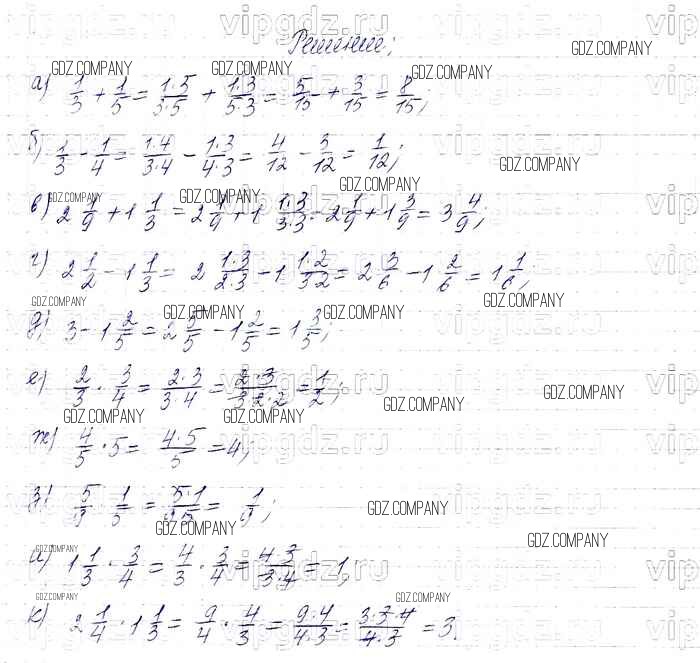 Решение;
а) 1/3 + 1/5 = 1·5/3·5 + 1·3/5·3 = 5/15 + 3/15 = 8/15;
б) 1/3 - 1/4 = 1·4/3·4 - 1·3/4·3 = 4/12 - 3/12 = 1/12;
в) 2 1/9 + 1 1/3 = 2 1/9 + 1 1·3/3·3 = 2 1/9 + 1 3/9 = 3 4/9;
г) 2 1/2 - 1 1/3 = 2 1·3/2·3 - 1 1·2/3·2 = 2 3/6 - 1 2/6 = 1 1/6;
д) 3 - 1 2/5 = 2 5/5 - 1 2/5 = 1 3/5;
е) 2/3 · 3/4 = 2·3/3·4 = 2·3/3·2·2 = 1/2;
ж) 4/5 · 5 = 4·5/5 = 4;
з) 5/9 · 1/5 = 5·1/9·5 = 1/9;
и) 1 1/3 · 3/4 = 4/3 · 3/4 = 4·3/3·4 = 1;
к) 2 1/4 · 1 1/3 = 9/4 · 4/3 = 9·4/4·3 = 3·3·4/4·3 = 3.
GDZ.COMPANY
vipgdz.ru